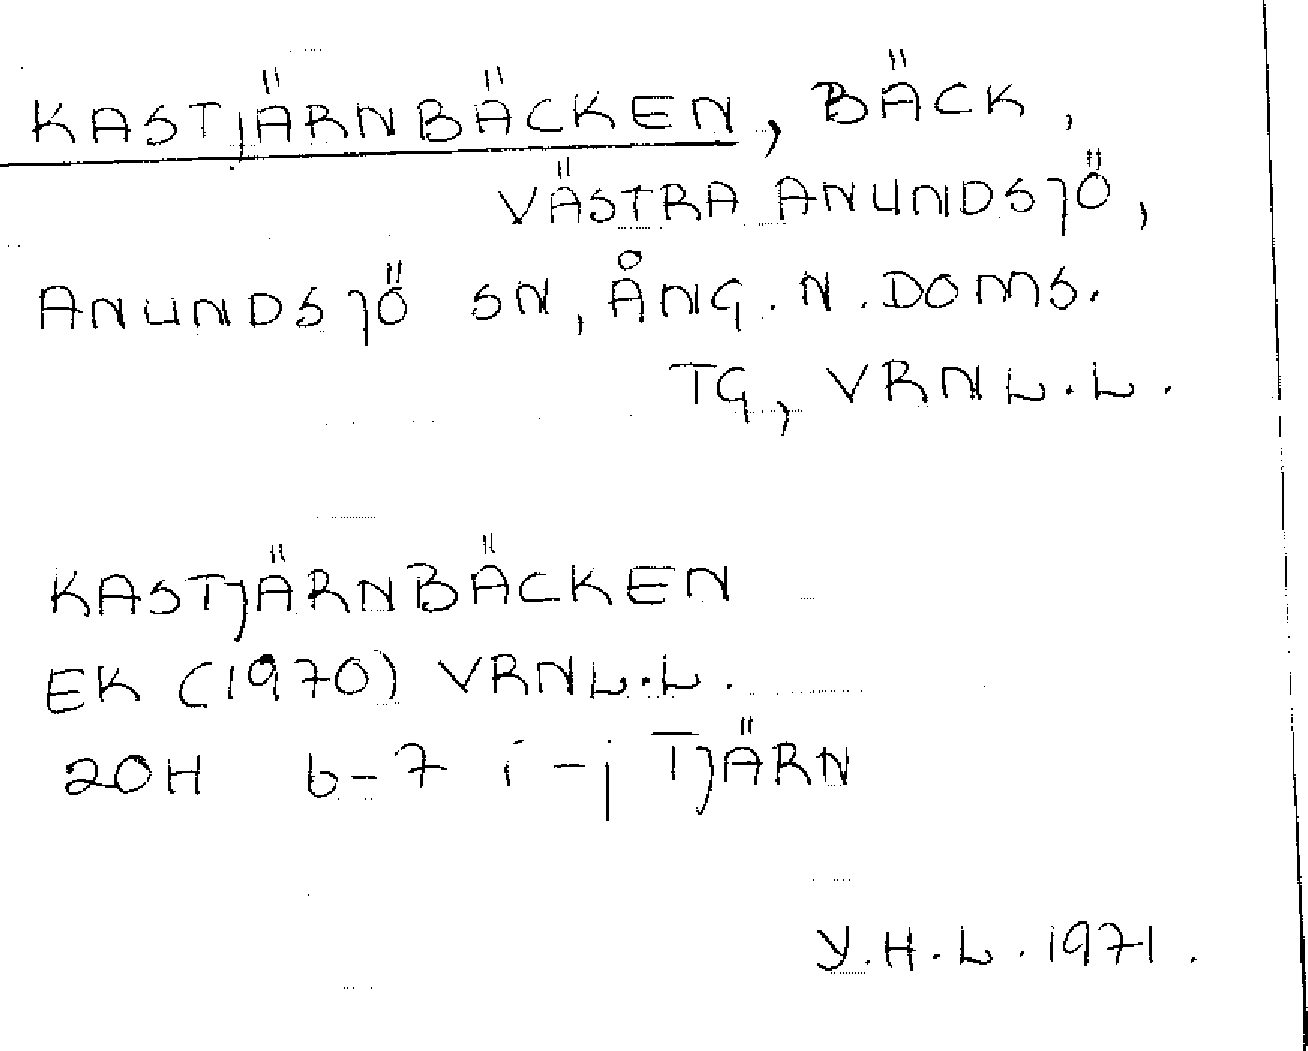 KASTJÄRNBÄCKEN, BÄCK,
VÄSTRA ANUNDSJÖ,
ANUNDSJÖ SN, ÅNG. N. DOMS.
TG, VRNL.L.
KASTJÄRNBÄCKEN
EK (1970) VRNL.L.
20H 6-7 i-j TJÄRN
Y.H.L. 1971.